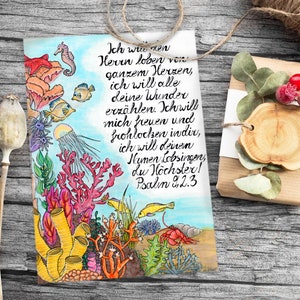 Ich will den
Herrn loben von
ganzem Herzen,
ich will alle
deine Wunder
erzählen. Ich will
mich freuen und
frohlocken in dir,
ich will deinem
Namen lobsingen,
du Höchster!
Psalm 9,2.3